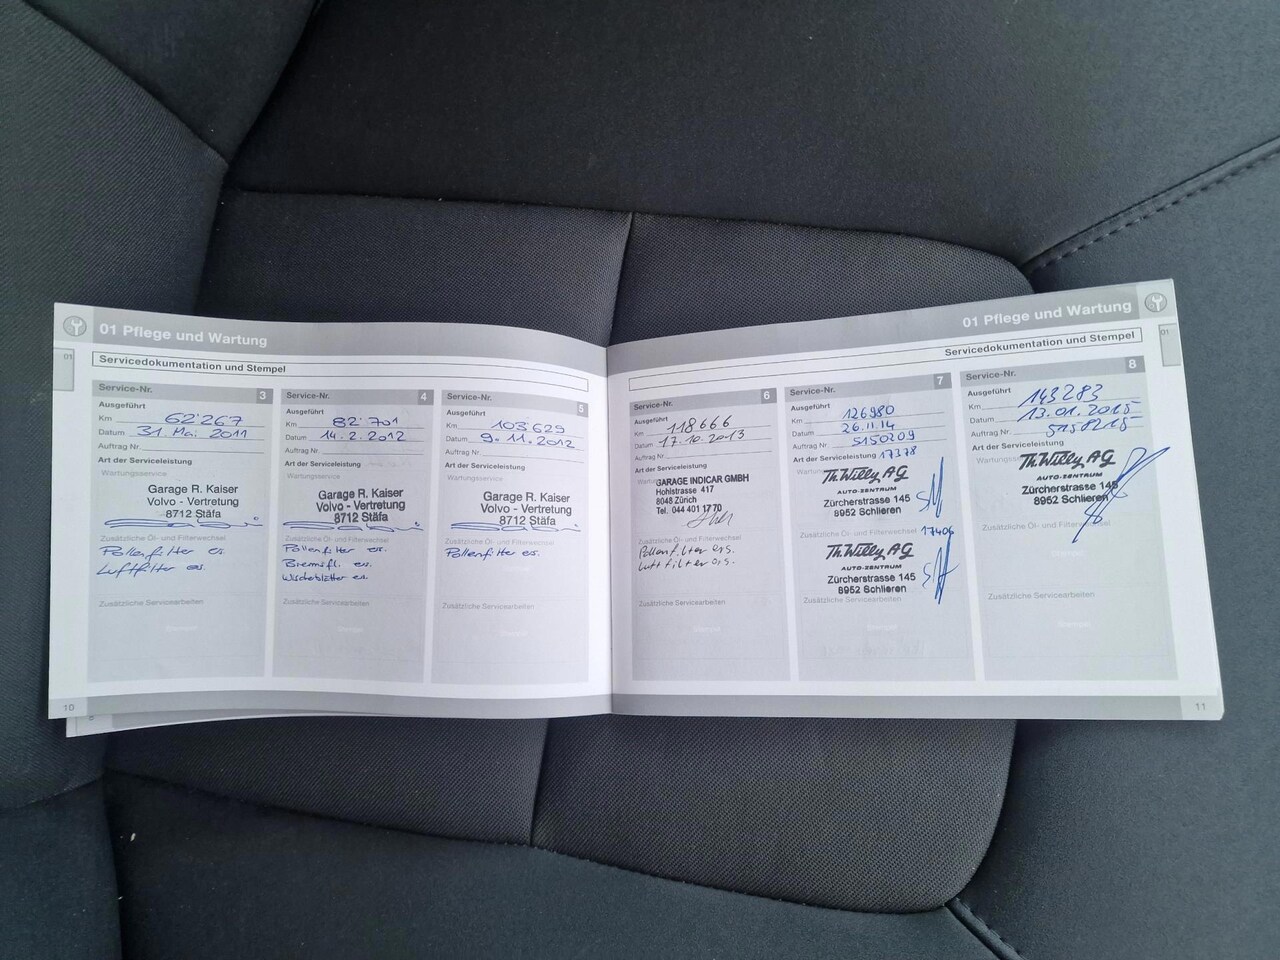 01 Pflege und Wartung
01
Servicedokumentation und Stempel
Service-Nr. 3
Ausgeführt
Km 62'267
Datum 31. Mai 2011
Auftrag Nr.
Art der Serviceleistung
Wartungsservice
Garage R. Kaiser
Volvo - Vertretung
8712 Stäfa
Zusätzliche Öl- und Filterwechsel
Pollenfilter ers.
Luftfilter ers.
Zusätzliche Servicearbeiten
Stempel
Service-Nr. 4
Ausgeführt
Km 82'701
Datum 14.2.2012
Auftrag Nr.
Art der Serviceleistung
Wartungsservice
Garage R. Kaiser
Volvo - Vertretung
8712 Stäfa
Zusätzliche Öl- und Filterwechsel
Pollenfilter ers.
Bremsfl. ers.
Wischerblätter ers.
Zusätzliche Servicearbeiten
Stempel
Service-Nr. 5
Ausgeführt
Km 103629
Datum 9.11.2012
Auftrag Nr.
Art der Serviceleistung
Wartungsservice
Garage R. Kaiser
Volvo - Vertretung
8712 Stäfa
Zusätzliche Öl- und Filterwechsel
Pollenfilter ers.
Zusätzliche Servicearbeiten
10
01 Pflege und Wartung
01
Servicedokumentation und Stempel
Service-Nr. 6
Ausgeführt
Km 118666
Datum 17.10.2013
Auftrag Nr.
Art der Serviceleistung
GARAGE INDICAR GMBH
Hohlstrasse 417
8048 Zürich
Tel. 044 401 17 70
Zusätzliche Öl- und Filterwechsel
Pollenfilter ers.
Luftfilter ers.
Zusätzliche Servicearbeiten
Stempel
Service-Nr. 7
Ausgeführt
Km 126980
Datum 26.11.14
Auftrag Nr. 5150209
Art der Serviceleistung 17378
Th. Willy AG
AUTO-ZENTRUM
Zürcherstrasse 145
8952 Schlieren
Zusätzliche Öl- und Filterwechsel 17406
Th. Willy AG
AUTO-ZENTRUM
Zürcherstrasse 145
8952 Schlieren
Zusätzliche Servicearbeiten
Service-Nr. 8
Ausgeführt
Km 143283
Datum 13.01.2015
Auftrag Nr. 5158215
Art der Serviceleistung
Th. Willy AG
AUTO-ZENTRUM
Zürcherstrasse 145
8952 Schlieren
Zusätzliche Öl- und Filterwechsel
Zusätzliche Servicearbeiten
11